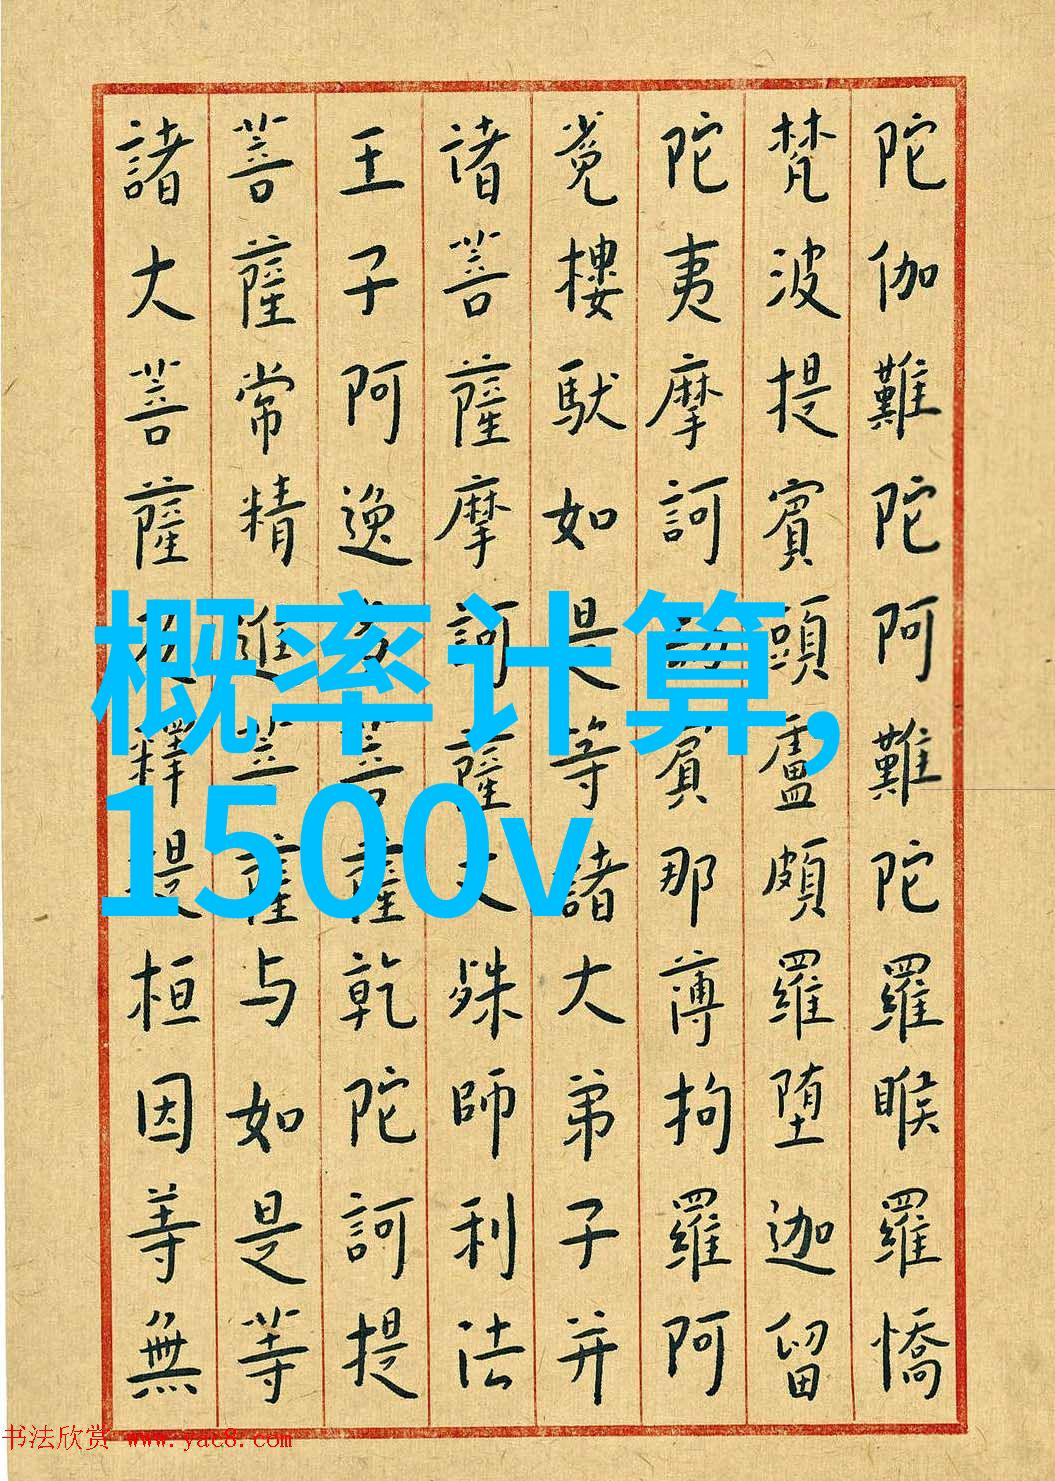 陀伽難陀阿難陀羅睺羅憍
梵波提賓頭盧頗羅堕迦留
陀夷摩訶劫賓那薄拘羅阿
㝹樓馱如是等諸大弟子并
诸菩薩摩訶薩文殊師利法
王子阿逸多菩薩乾陀訶提
菩薩常精進菩薩与如是等
諸大菩薩及釋提桓因等無
概率计算,
1500v
书法欣赏 www.yac8.com